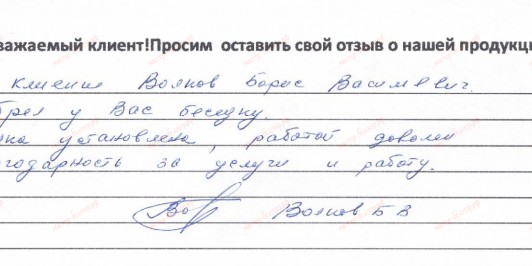 важаемый клиент!Просим оставить свой отзыв о нашей продукц
клиент Волков Борис Васильевич.
брел у Вас беседку.
на установлена, работой доволен
годарность за услуги и работу.
Волков Б В